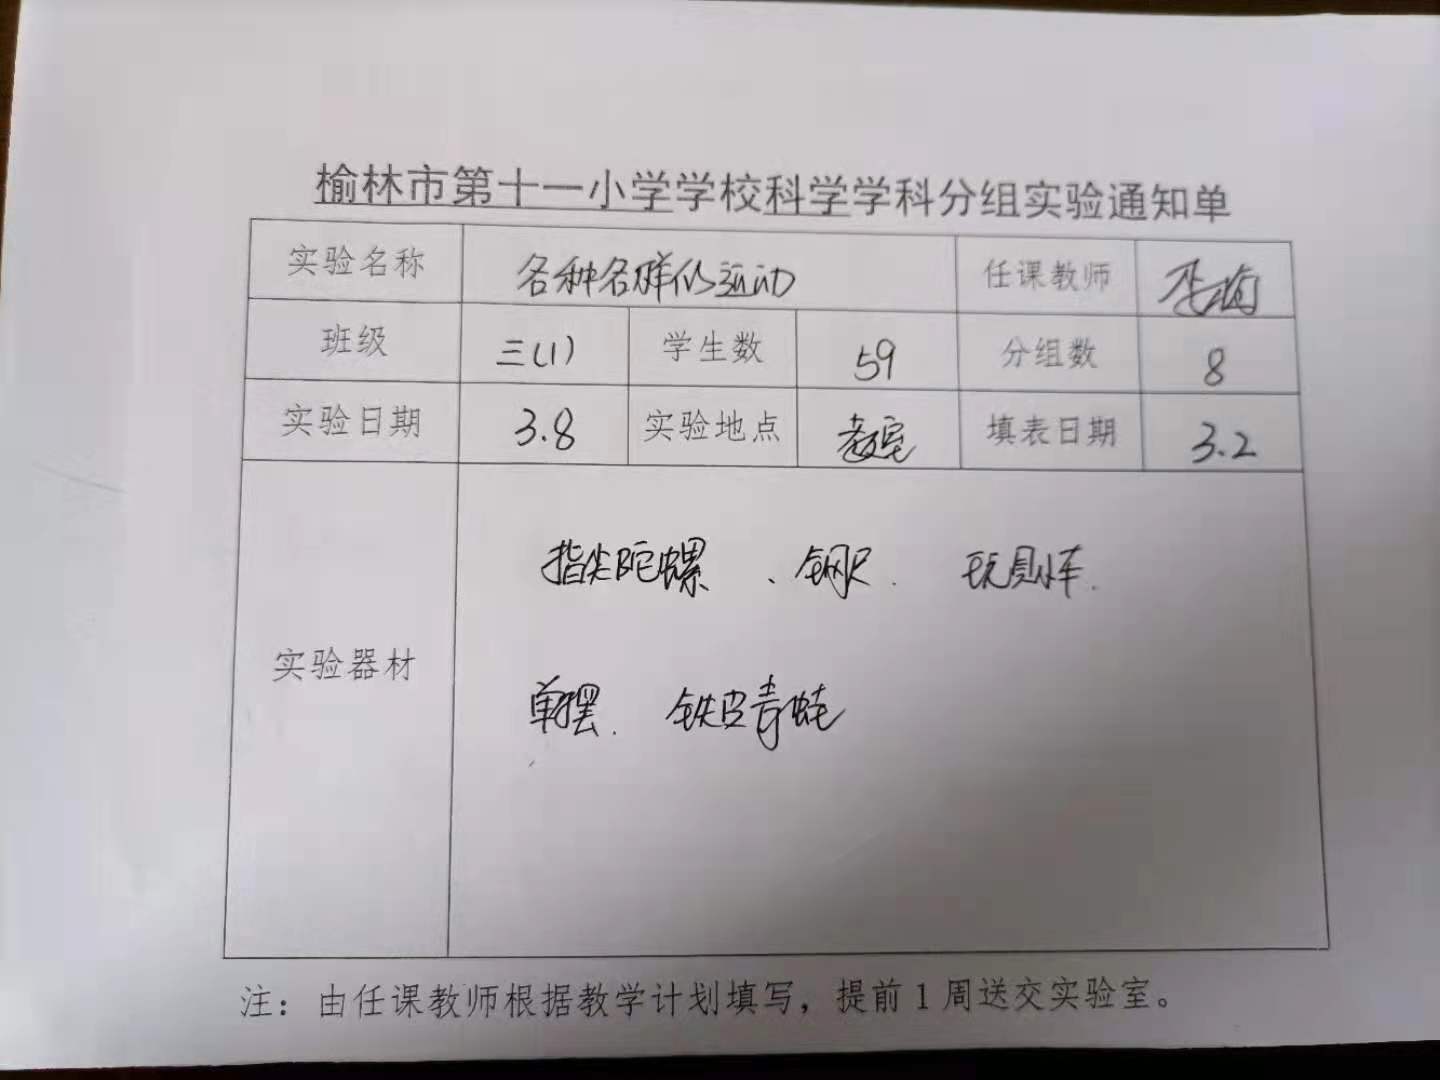 榆林市第十一小学学校科学学科分组实验通知单
实验名称 各种各样的运动 任课教师
班级 三(1) 学生数 59 分组数 8
实验日期 3.8 实验地点 教室 填表日期 3.2
指尖陀螺、钢尺. 玩具小车.
实验器材
单摆. 铁皮青蛙
注：由任课教师根据教学计划填写，提前1周送交实验室。